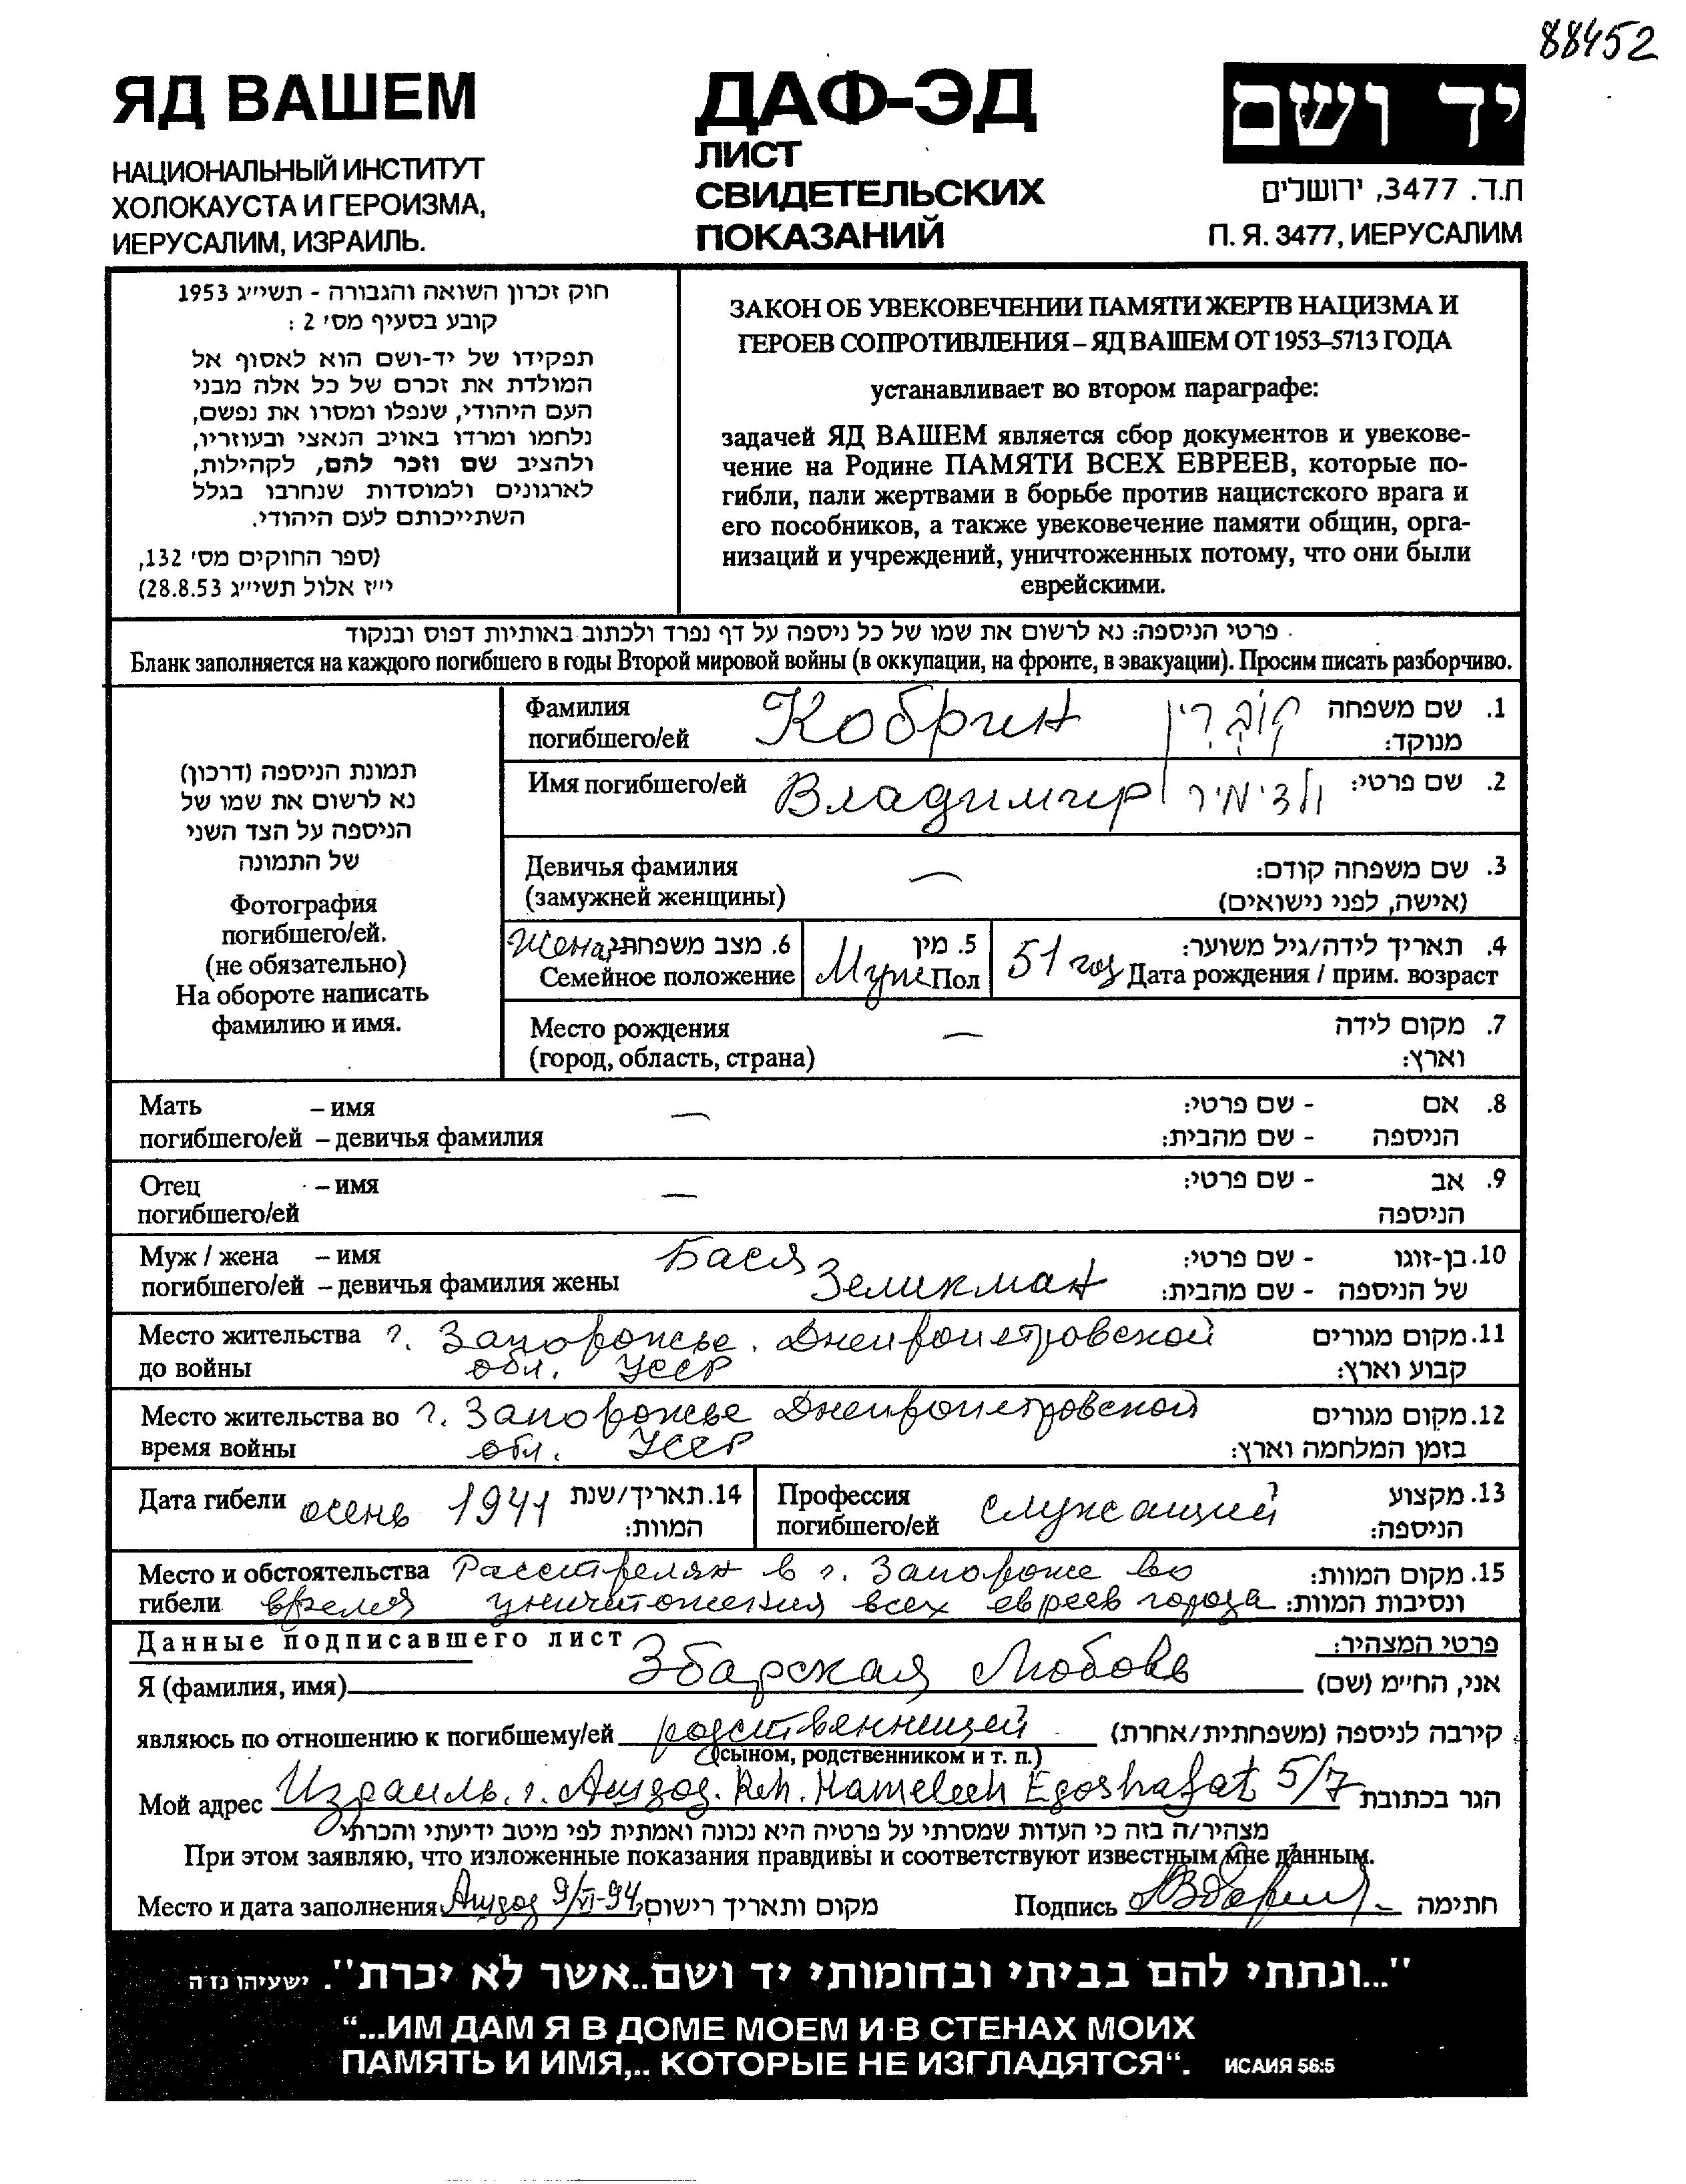 88452
ЯД ВАШЕМ
НАЦИОНАЛЬНЫЙ ИНСТИТУТ
ХОЛОКАУСТА И ГЕРОИЗМА,
ИЕРУСАЛИМ, ИЗРАИЛЬ.
ДАФ-ЭД
ЛИСТ
СВИДЕТЕЛЬСКИХ
ПОКАЗАНИЙ
יד ושם
ת.ד. 3477, ירושלים
П. Я. 3477, ИЕРУСАЛИМ
חוק זכרון השואה והגבורה - תשי״ג 1953
קובע בסעיף מס׳ 2 :
תפקידו של יד-ושם הוא לאסוף אל
המולדת את זכרם של כל אלה מבני
העם היהודי, שנפלו ומסרו את נפשם,
נלחמו ומרדו באויב הנאצי ובעוזריו,
ולהציב שם וזכר להם, לקהילות,
לארגונים ולמוסדות שנחרבו בגלל
השתייכותם לעם היהודי.
(ספר החוקים מס׳ 132,
י״ז אלול תשי״ג 28.8.53)
ЗАКОН ОБ УВЕКОВЕЧЕНИИ ПАМЯТИ ЖЕРТВ НАЦИЗМА И
ГЕРОЕВ СОПРОТИВЛЕНИЯ – ЯД ВАШЕМ ОТ 1953–5713 ГОДА
устанавливает во втором параграфе:
задачей ЯД ВАШЕМ является сбор документов и увекове-
чение на Родине ПАМЯТИ ВСЕХ ЕВРЕЕВ, которые по-
гибли, пали жертвами в борьбе против нацистского врага и
его пособников, а также увековечение памяти общин, орга-
низаций и учреждений, уничтоженных потому, что они были
еврейскими.
פרטי הניספה: נא לרשום את שמו של כל ניספה על דף נפרד ולכתוב באותיות דפוס ובנקוד
Бланк заполняется на каждого погибшего в годы Второй мировой войны (в оккупации, на фронте, в эвакуации). Просим писать разборчиво.
תמונת הניספה (דרכון)
נא לרשום את שמו של
הניספה על הצד השני
של התמונה
Фотография
погибшего/ей.
(не обязательно)
На обороте написать
фамилию и имя.
Фамилия Кобрин קוברין 1. שם משפחה
погибшего/ей מנוקד:
Имя погибшего/ей Владимир ולדימיר 2. שם פרטי:
Девичья фамилия — 3. שם משפחה קודם:
(замужней женщины) (אישה, לפני נישואים)
Жена 6. מצב משפחתי: 5. מין 4. תאריך לידה/גיל משוער:
Семейное положение Муж Пол 51 год Дата рождения / прим. возраст
Место рождения — 7. מקום לידה
(город, область, страна) וארץ:
Мать – имя — - שם פרטי: 8. אם
погибшего/ей – девичья фамилия - שם מהבית: הניספה
Отец – имя — - שם פרטי: 9. אב
погибшего/ей הניספה
Муж / жена – имя Бася - שם פרטי: 10. בן-זוגו
погибшего/ей – девичья фамилия жены Зеликман - שם מהבית: של הניספה
Место жительства г. Запорожье. Днепропетровской 11. מקום מגורים
до войны обл. УССР קבוע וארץ:
Место жительства во г. Запорожье Днепропетровской 12. מקום מגורים
время войны обл. УССР בזמן המלחמה וארץ:
Дата гибели осень 1941 14. תאריך/שנת המוות:
Профессия служащий 13. מקצוע
погибшего/ей הניספה:
Место и обстоятельства Расстрелян в г. Запороже во 15. מקום המוות:
гибели время уничтожения всех евреев города ונסיבות המוות:
Данные подписавшего лист פרטי המצהיר:
Я (фамилия, имя) Збарская Любовь אני, הח״מ (שם)
являюсь по отношению к погибшему/ей родственницей קירבה לניספה (משפחתית/אחרת)
(сыном, родственником и т. п.)
Мой адрес Израиль. г. Ашдод. Reh. Hamelech Egoshafat 5/7 הגר בכתובת
מצהיר/ה בזה כי העדות שמסרתי על פרטיה היא נכונה ואמתית לפי מיטב ידיעתי והכרתי
При этом заявляю, что изложенные показания правдивы и соответствуют известным мне данным.
Место и дата заполнения Ашдод 9/VI-94 מקום ותאריך רישום: Подпись חתימה
"...ונתתי להם בביתי ובחומותי יד ושם..אשר לא יכרת". ישעיהו נז ה
“...ИМ ДАМ Я В ДОМЕ МОЕМ И В СТЕНАХ МОИХ
ПАМЯТЬ И ИМЯ,.. КОТОРЫЕ НЕ ИЗГЛАДЯТСЯ“. ИСАИЯ 56:5